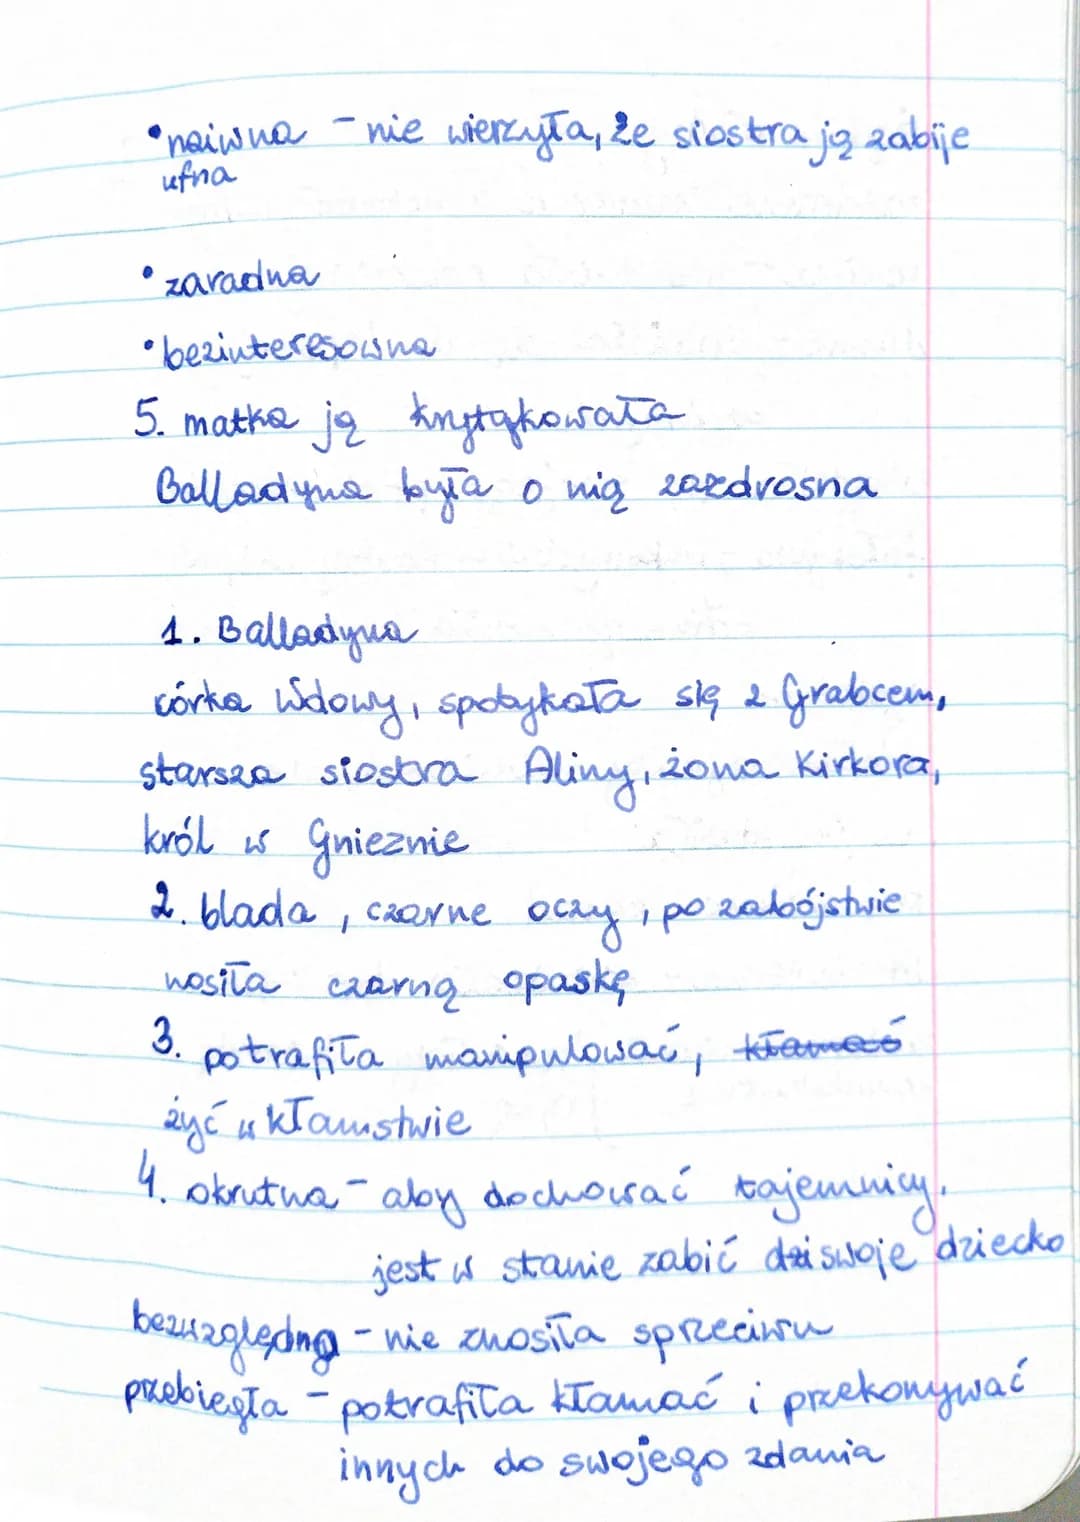 • naiwna - nie wierzyła, że siostra ją zabije
ufna
• zaradna
• bezinteresowna
5. matka ją krytykowała
Balladyna była o nią zazdrosna
1. Balladyna
córka Wdowy, spotykała się z Grabcem,
starsza siostra Aliny, żona Kirkora,
król w Gnieznie
2. blada, czarne oczy, po zabójstwie
nosiła czarną opaskę
3. potrafiła manipulować, kłamać
żyć w kłamstwie
4. okrutna - aby dochować tajemnicy.
jest w stanie zabić dzi swoje dziecko
bezwzględna - nie znosiła sprzeciwu
przebiegła - potrafiła kłamać i przekonywać
innych do swojego zdania